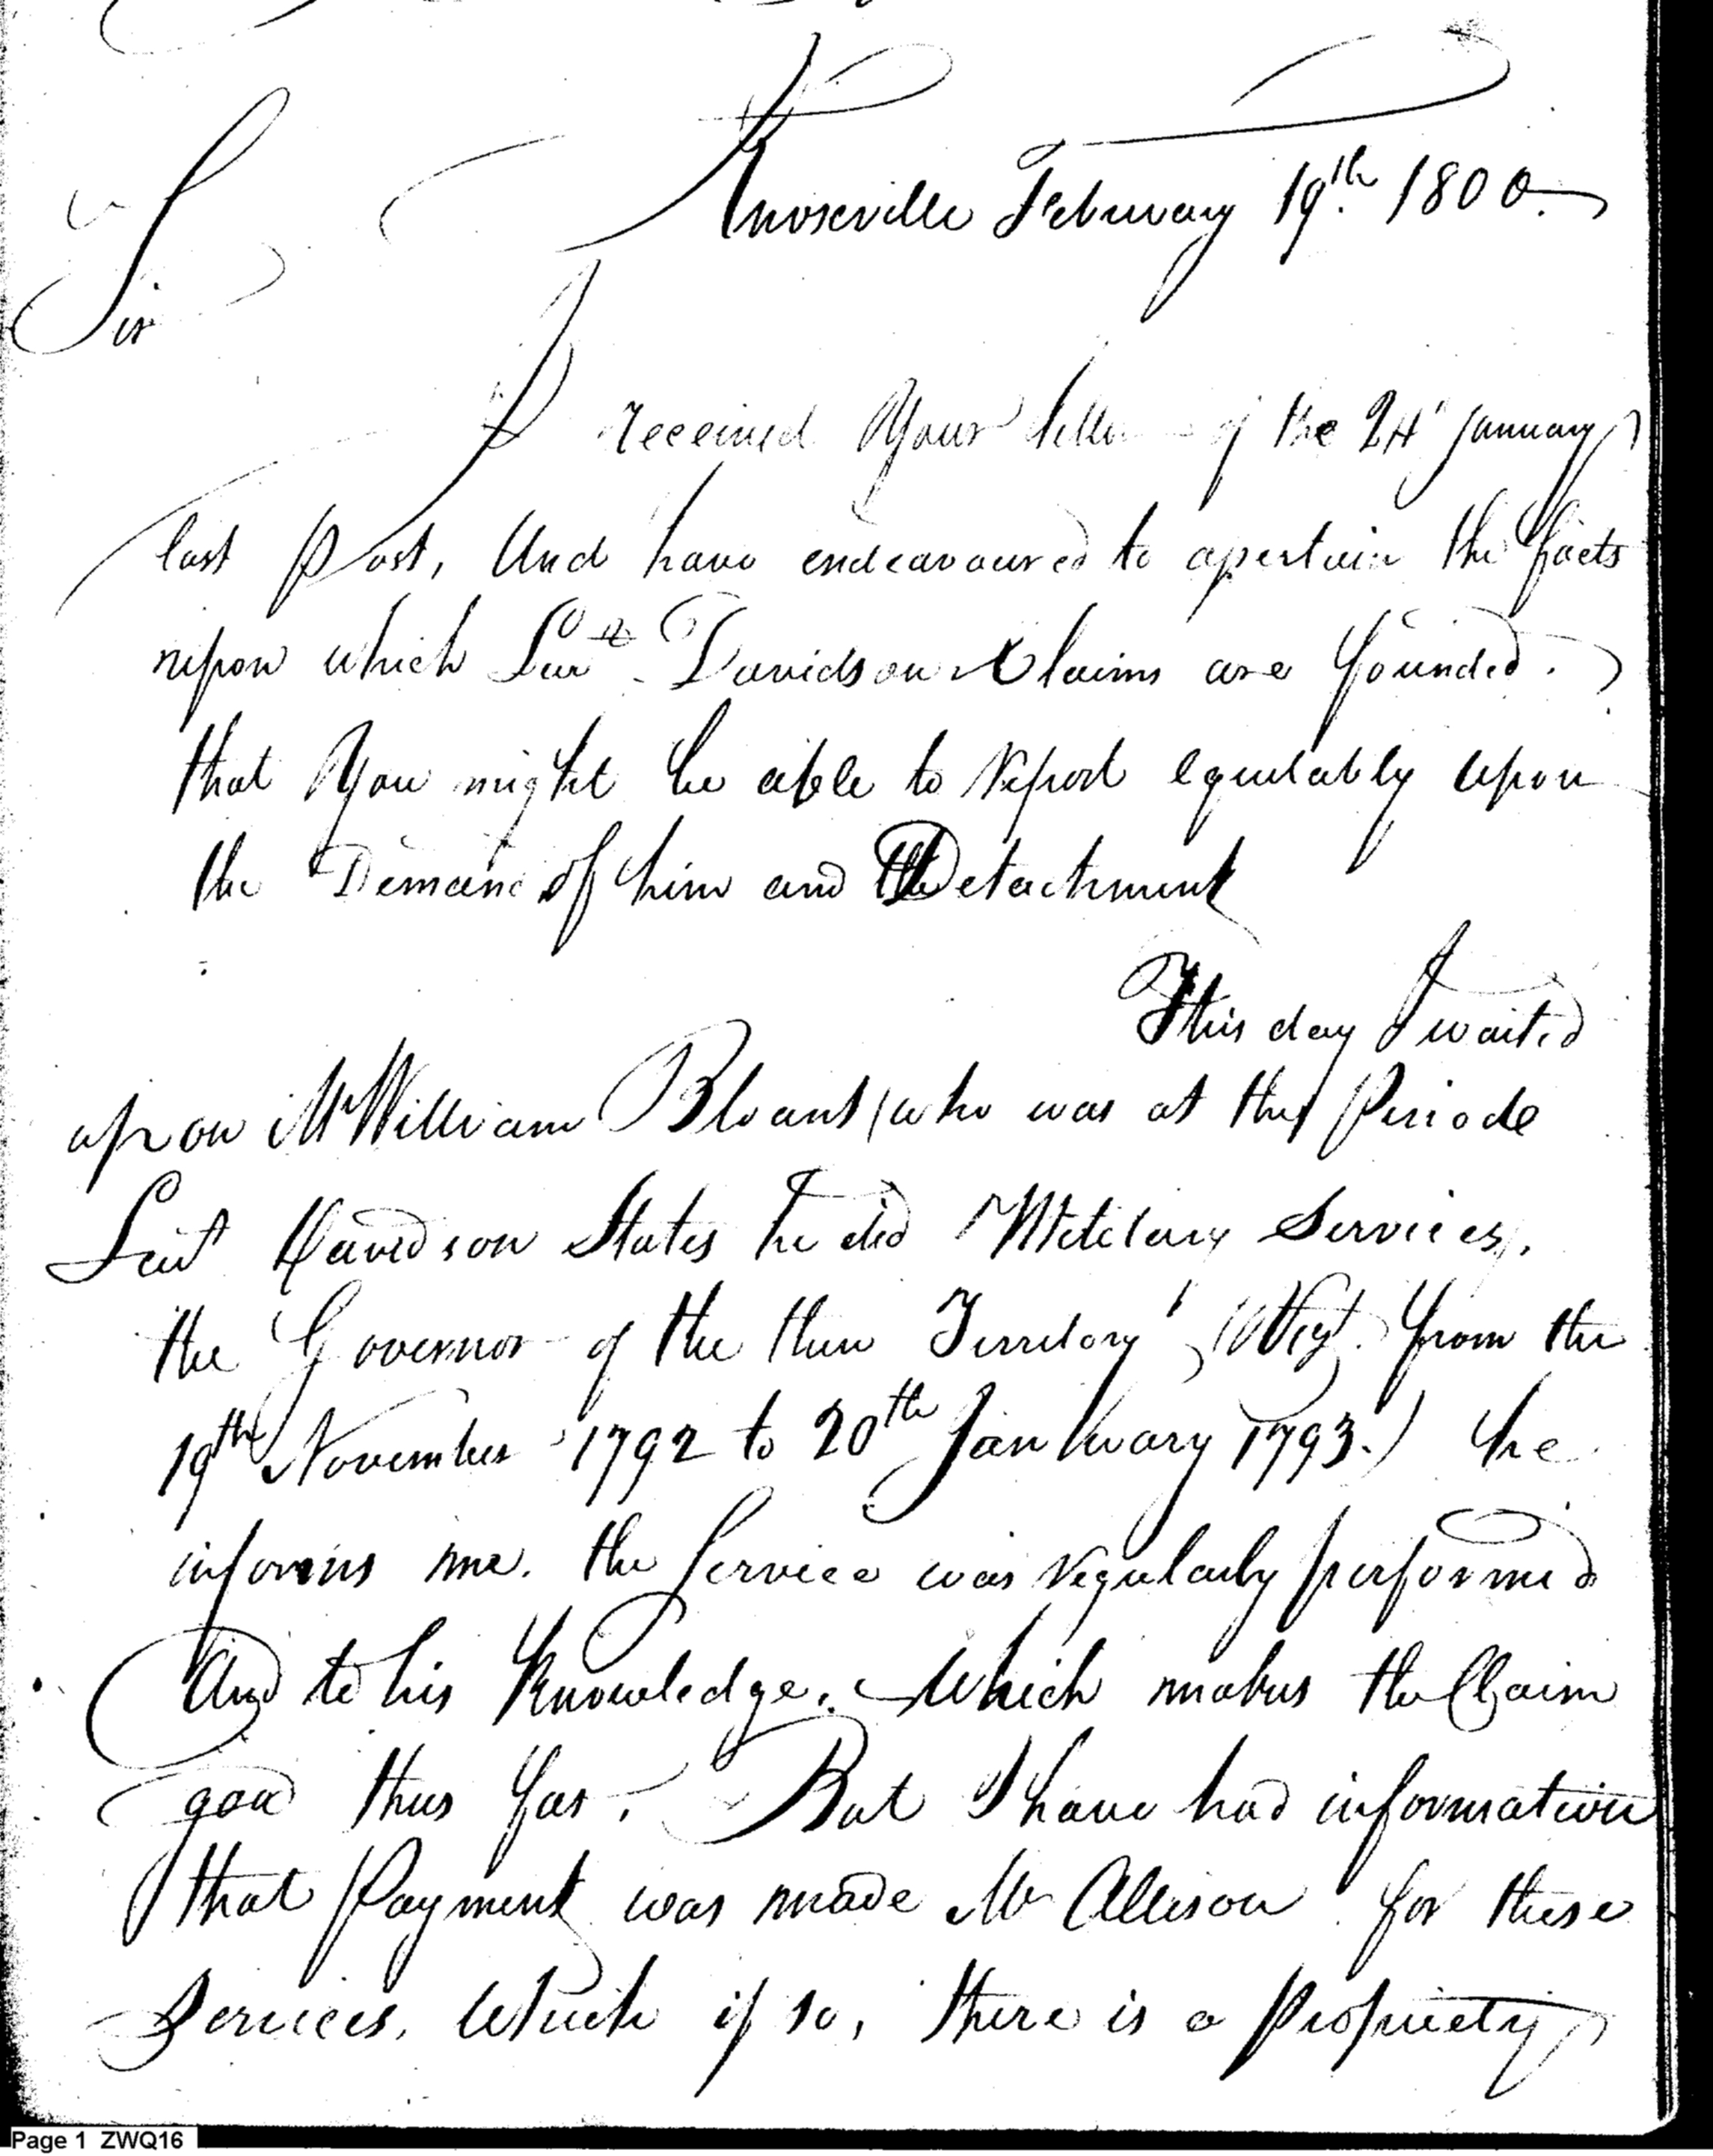 Knoxville February 19th 1800.
Sir
I received Your letter of the 24 January
last Post, And have endeavoured to assertain the facts
upon which Lieut Davidson Claims are founded.
that You might be able to report equitably upon
the Demand of him and the Detachment
This day I waited
upon Mr William Blount (who was at the Periode
Leut Davidson States he did Militery Services,
the Governor of the then Territory from the
19th November 1792 to 20th January 1793.) he
informs me. the Service was regularly performed
And to his Knowledge. Which makes the Claim
good thus far. But I have had information
that Payment was made Mr Allison for these
Services, Which if so, there is a Propriety
Page 1 ZWQ16